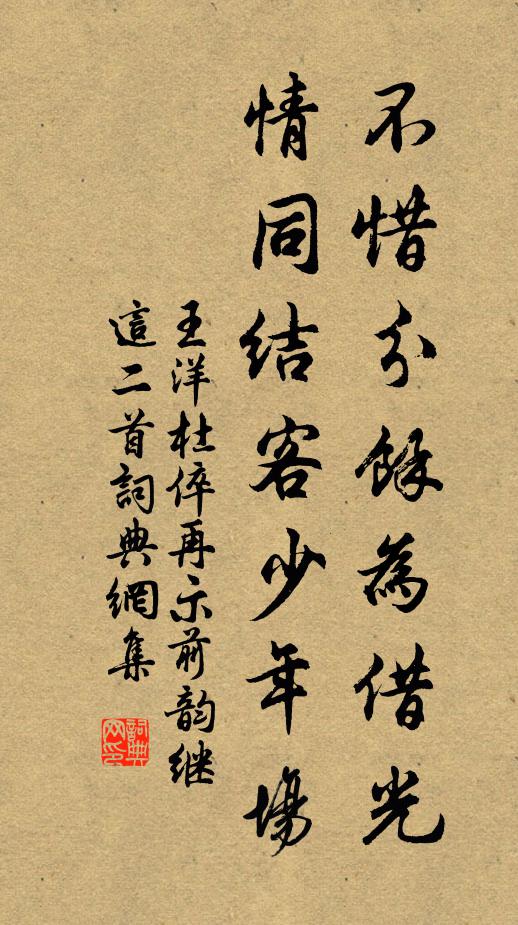 不惜分餘為借光
情同結客少年場
王洋杜倅再示前韵继
這二首詞典網集
詞典网印